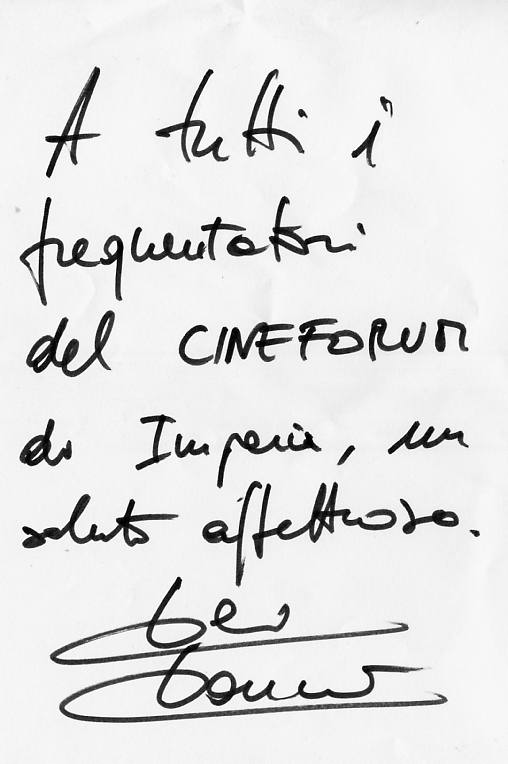 A tutti i
frequentatori
del CINEFORUM
di Imperia, un
saluto affettuoso.